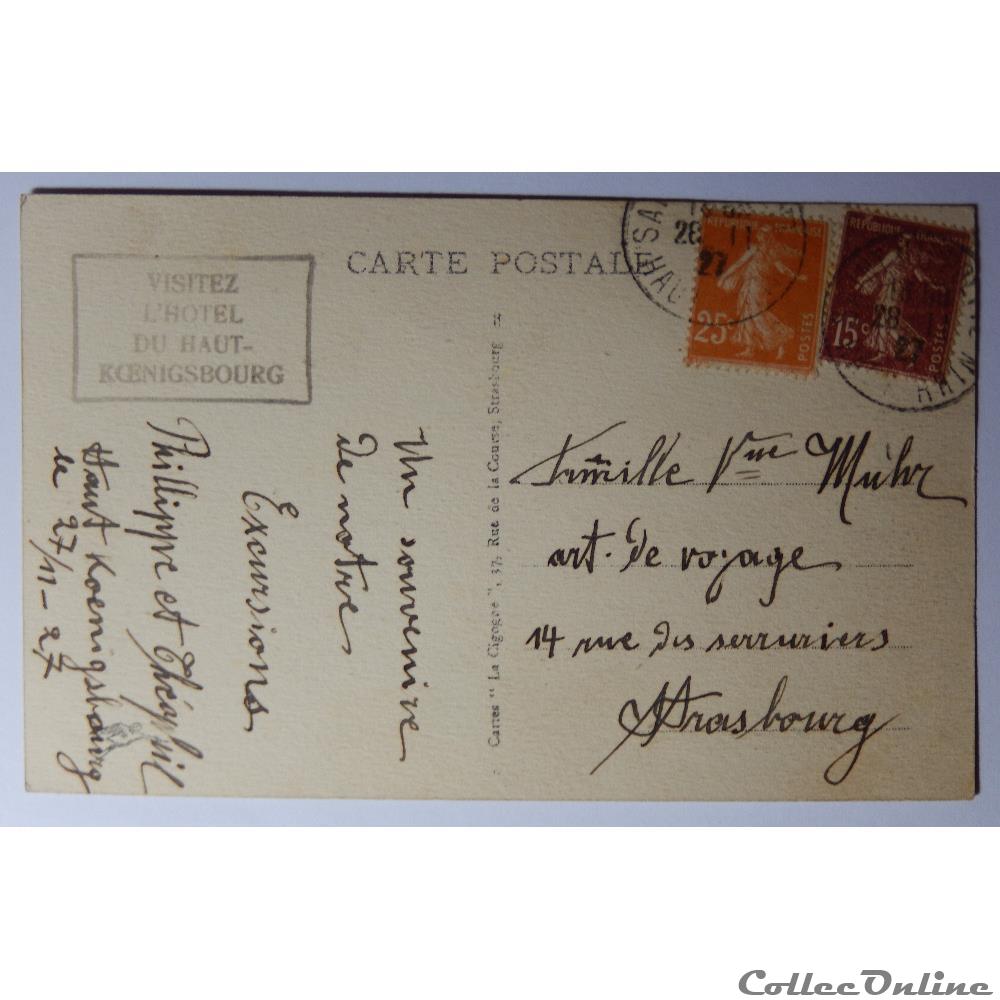 VISITEZ
L'HOTEL
DU HAUT-
KŒNIGSBOURG
CARTE POSTALE
28 11
27
RÉPUBLIQUE FRANÇAISE
25c
POSTES
RÉPUBLIQUE FRANÇAISE
15c
POSTES
28
27
RHIN
Un souvenire
de notre
Excursions
Phillippe et Théophil
Haut Koenigsbourg
le 27/11-27
Cartes "La Cigogne", 37, Rue de la Course, Strasbourg
Famille Vve Mühr
art. de voyage
14 rue des serruriers
Strasbourg
CollecOnline